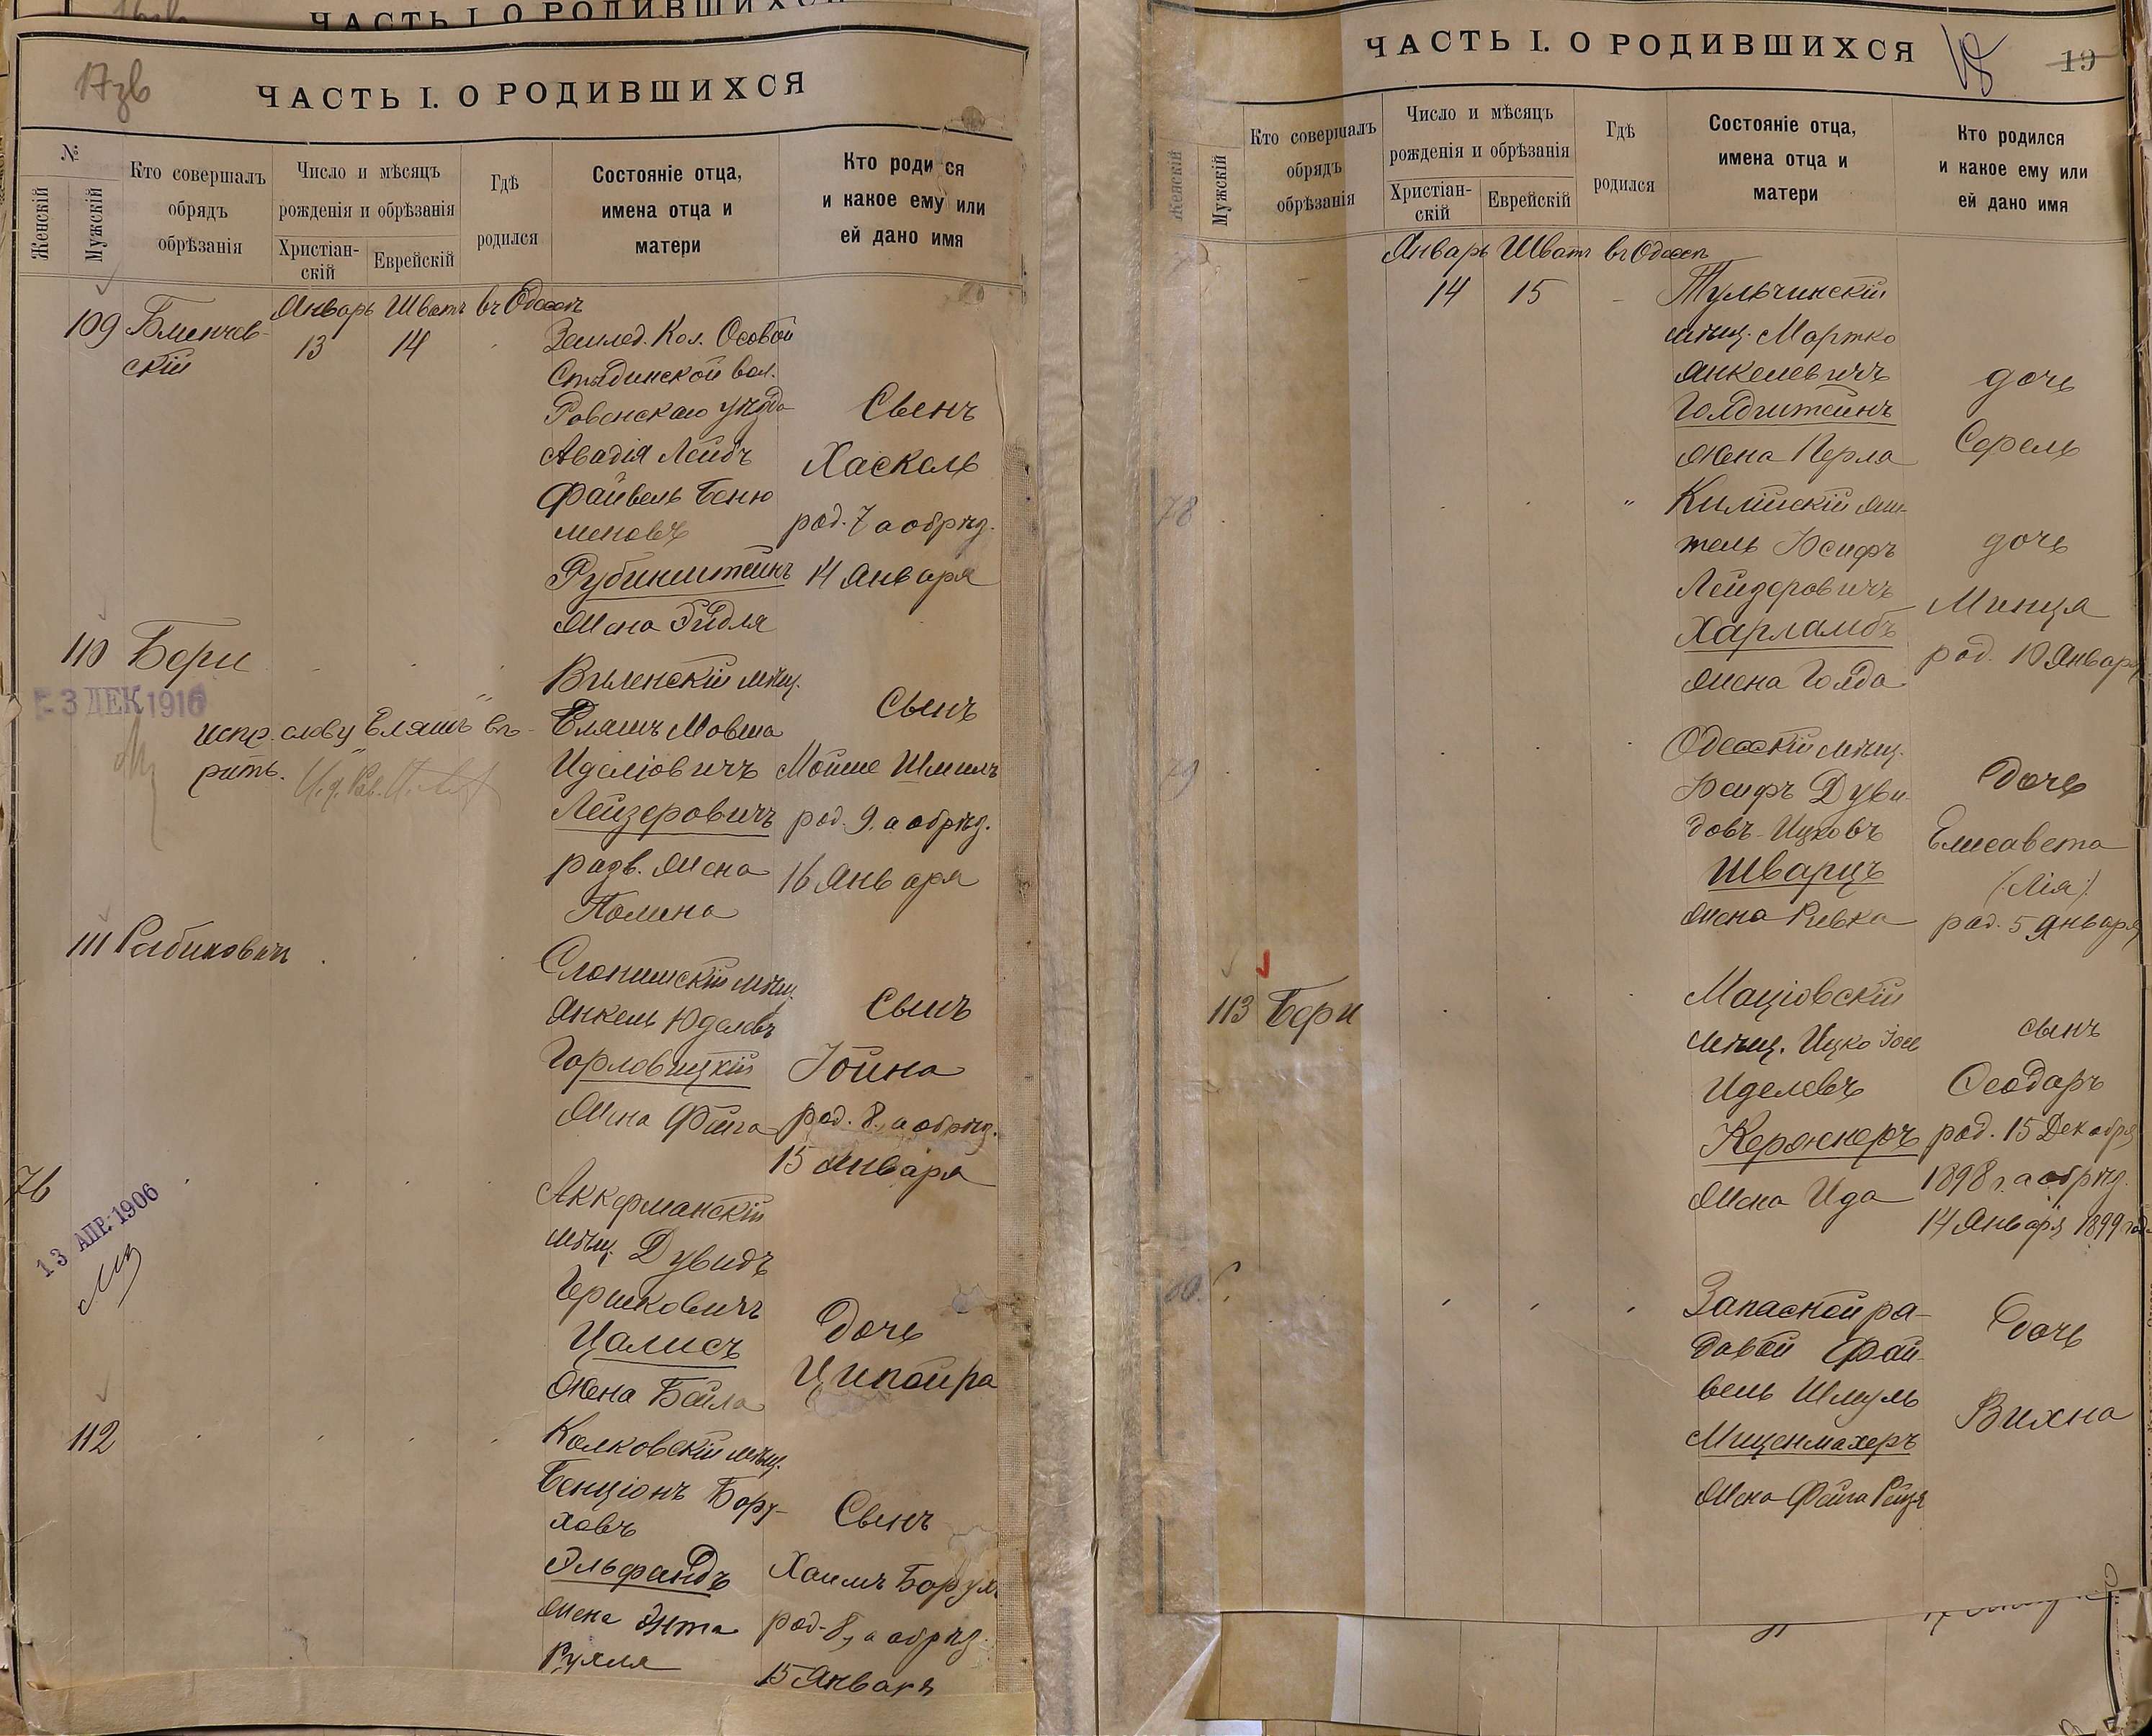 ЧАСТЬ I. О РОДИВШИХСЯ
17зв
ЧАСТЬ I. О РОДИВШИХСЯ
№
Женскій
Мужскій
Кто совершалъ
обрядъ
обрѣзанія
Число и мѣсяцъ
рожденія и обрѣзанія
Христіан-
скій
Еврейскій
Гдѣ
родился
Состояніе отца,
имена отца и
матери
Кто роди ся
и какое ему или
ей дано имя
Январь Шватъ въ Одессѣ
109
13 14
Землед. Кол. Осовой
Ровенскаго уѣзда
Авадія Лейбъ
Файвель Беню
меновъ
Рубинштейнъ
жена Эйдля
Сынъ
Хаскель
род. 7 а обрѣз.
14 Января
110 Бери
- 3 ДЕК 1916
испр. слову Еляшъ вѣ-
рить.
Виленскій мѣщ.
Еляшъ Мовша
Иделіовичъ
Лейзеровичъ
разв. жена
Полина
Сынъ
Мойше Шмилъ
род. 9. а обрѣз.
16 Января
111 Рабиновичъ
Слонимскій мѣщ.
Янкель Юделевъ
Горловицкій
жена Фейга
Сынъ
Іойна
род. 8., а обрѣз.
15 Января
76
13 АПР. 1906
Аккерманскій
мѣщ. Дувидъ
Гершковичъ
Цалисъ
жена Бейла
Дочь
Ципойра
112
Колковскій мѣщ.
Бенціонъ Бору-
ховъ
Эльфандъ
жена Энта
Рухля
Сынъ
Хаимъ Борухъ
род. 8, а обрѣз.
15 Января
ЧАСТЬ I. О РОДИВШИХСЯ
19
Женскій
Мужскій
Кто совершалъ
обрядъ
обрѣзанія
Число и мѣсяцъ
рожденія и обрѣзанія
Христіан-
скій
Еврейскій
Гдѣ
родился
Состояніе отца,
имена отца и
матери
Кто родился
и какое ему или
ей дано имя
Январь Шватъ въ Одессѣ
14 15
Тульчинскій
мѣщ. Мортко
Янкелевичъ
Голдштейнъ
жена Перла
дочь
Серель
78
"
Килійскій жи-
тель Іосифъ
Лейзеровичъ
Харламбъ
жена Голда
дочь
Минця
род. 10 Января
79
Одесскій мѣщ.
Іосифъ Дуви-
довъ-Ицковъ
Шварцъ
жена Ривка
Дочь
Елисавета
(Лія).
род. 5 Января
113 Бери
Маціовскій
мѣщ. Ицко Іос
Иделевъ
Кержнеръ
жена Ида
сынъ
Ѳеодоръ
род. 15 Декабря
1898 г. а обрѣз.
14 Января 1899 год.
80.
Запасной ря-
довой Фай-
вель Шмуль
Миценмахеръ
жена Фейга Рейзя
Дочь
Вихна